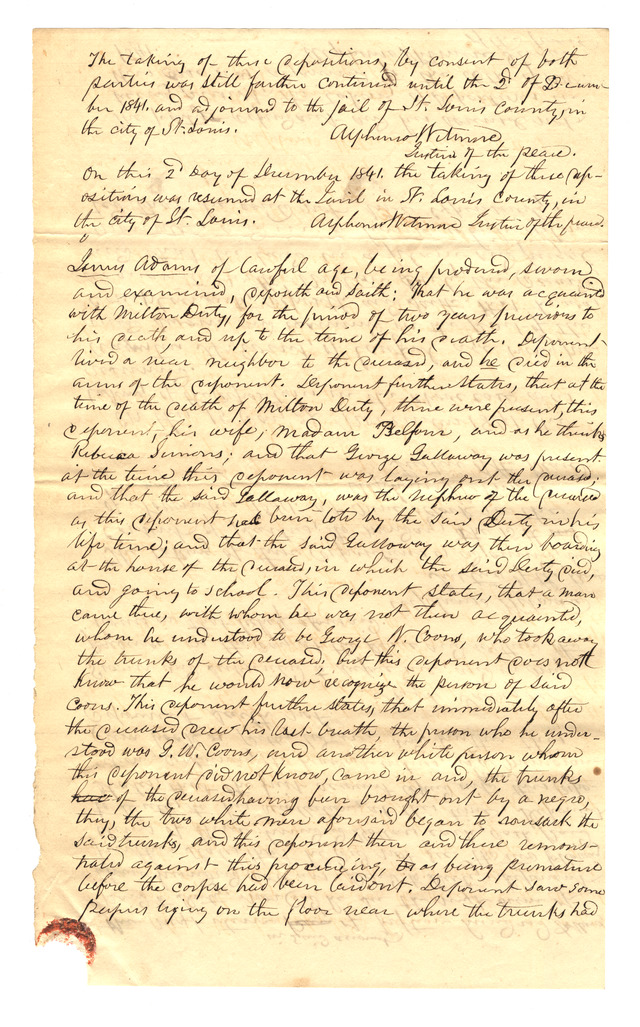 The taking of these depositions, by consent of both
parties was still farther continued until the 2d of Decem-
ber 1841. and adjourned to the jail of St. Louis County, in
the city of St. Louis. Alphonso Wetmore
Justice of the peace.
On this 2d Day of December 1841. the taking of these dep-
ositions was resumed at the Jail in St. Louis County, in
the city of St. Louis. Alphonso Wetmore Justice of the peace.
James Adams of lawful age, being produced, sworn
and examined, deposeth and saith: That he was acquainted
with Milton Duty, for the period of two years previous to
his death and up to the time of his death. Deponent
lived a near neighbor to the deceased, and he died in the
arms of the deponent. Deponent further states, that at the
time of the death of Milton Duty, there were present, this
deponent, his wife, Madam Belfour, and as he thinks
Rebecca Simons; and that George Gallaway was present
at the time this deponent was laying out the deceased;
and that the said Gallaway, was the nephew of the deceased
as this deponent had been told by the said Duty in his
life time; and that the said Gallaway was then boarding
at the house of the deceased, in which the said Duty died,
and going to school. This deponent states, that a man
came there, with whom he was not then acquainted,
whom he understood to be George W. Coons, who took away
the trunks of the deceased, but this deponent does not
know that he would now, recognize the person of said
Coons. This deponent further states, that immediately after
the deceased drew his last breath, the person who he under-
stood was G. W. Coons, and another white person whom
this deponent did not know, came in and, the trunks
had of the deceased having been brought out by a negro,
they, the two white men aforesaid began to ransack the
said trunks, and this deponent then and there remons-
trated against this proceeding, as being premature
before the corpse had been laid out. Deponent saw some
papers lying on the floor near where the trunks had